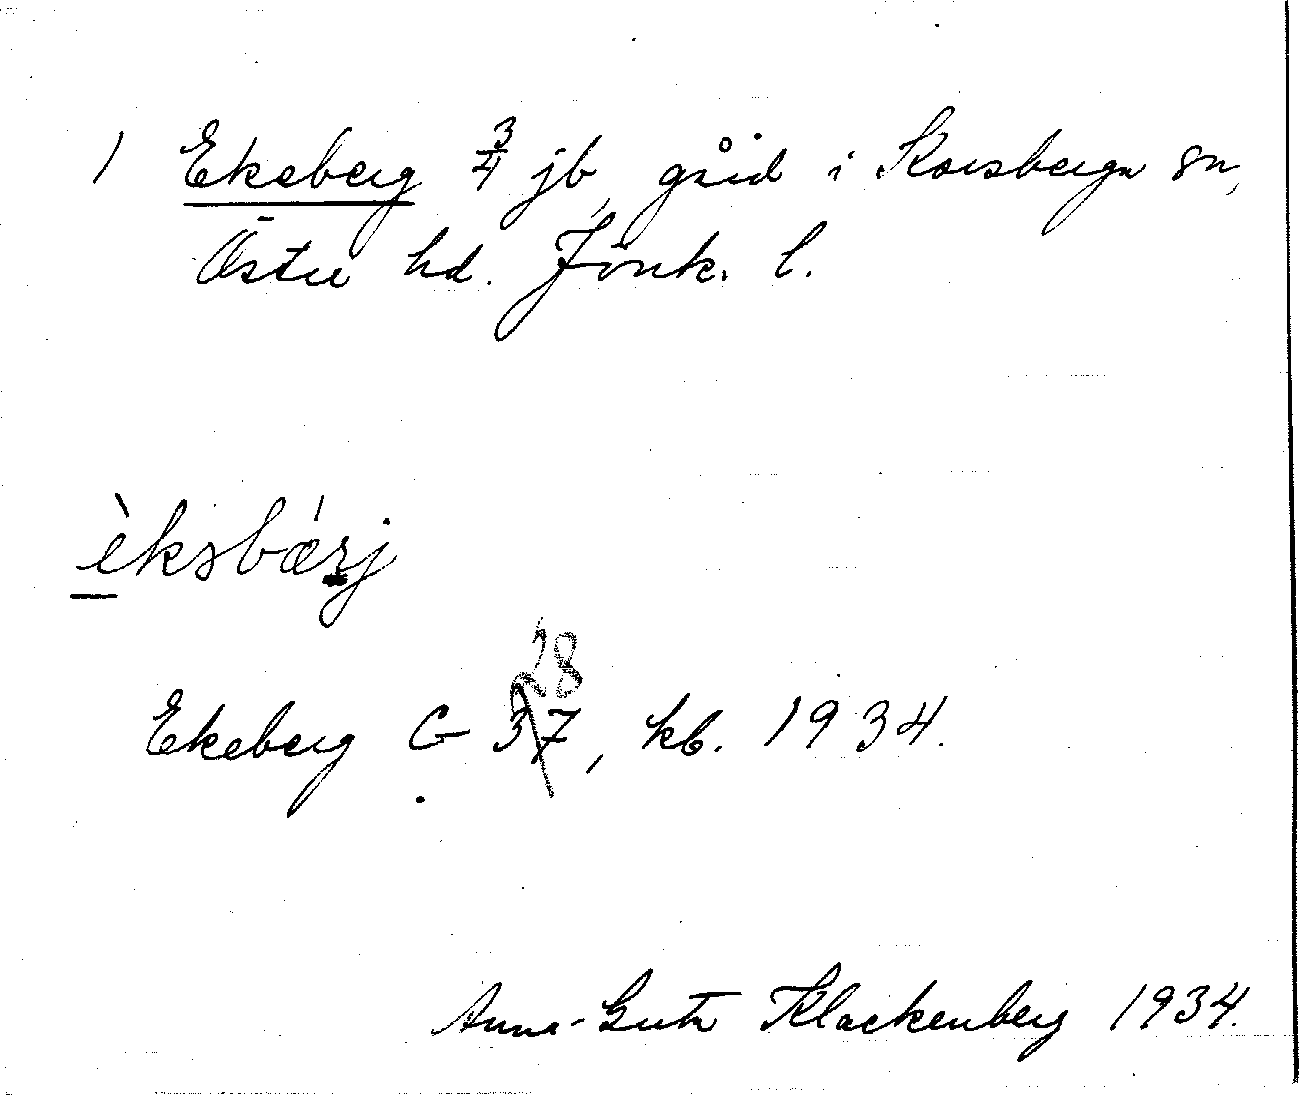 1 Ekeberg 3/4 jb, gård i Korsberga sn,
Östra hd. Jönk. l.
èksbǽrj
28
Ekeberg G 37, kb. 1934.
Anna-Greta Klackenberg 1934.